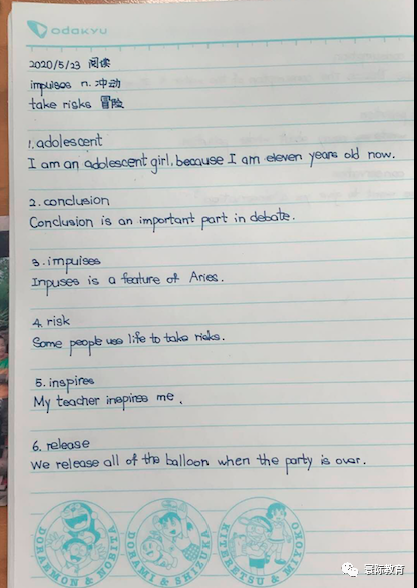 odakyu
2020/5/23 阅读
impuises n. 冲动
take risks 冒险
1. adolescent
I am an adolescent girl, because I am eleven years old now.
2. conclusion
Conclusion is an important part in debate.
3. impuises
Inpuses is a feature of Aries.
4. risk
Some people use life to take risks.
5. inspires
My teacher inspires me.
6. release
We release all of the balloon when the party is over.
DOREMON & NOBITA
DORAMI & SHIZUKA
KITERETSU & MIYOKO
寰际教育